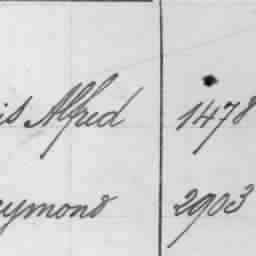 is Alfred 1478
eymond 2903